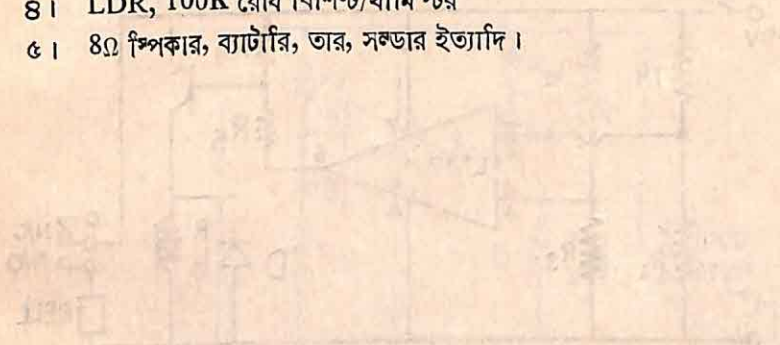 ৪। LDR, 100K রোধ বিশিষ্ট/বা
৫। 8Ω স্পিকার, ব্যাটারি, তার, সল্ডার ইত্যাদি।